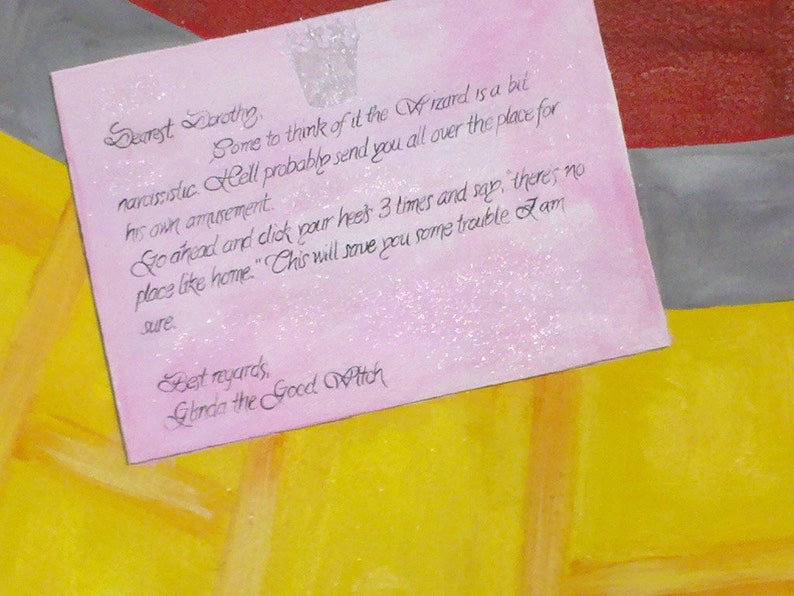 Dearest Dorothy,
Come to think of it the Wizard is a bit
narcissistic. He'll probably send you all over the place for
his own amusement.
Go ahead and click your heels 3 times and say, "there's no
place like home." This will save you some trouble I am
sure.
Best regards,
Glinda the Good Witch